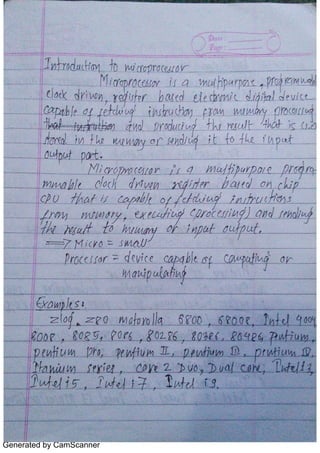 Date :
Page :
Introduction to microprocessor
Microprocessor is a multipurpose, programmable
clock driven, register based electronic digital device
capable of fetching instruction from memory processing
that instruction and producing the result that is
stored in the memory or sending it to the input
output port.
Microprocessor is a multipurpose progra-
mmable clock driven register based on chip
CPU that is capable of fetching instructions
from memory, executing (processing) and sending
the result to memory or input output.
⇒ Micro = small
Processor = device capable of computing or
manipulating
Examples:
zlog, z80 motorolla 6800, 68008, Intel 4004
8008, 8085, 8086, 80286, 80386, 80486 Pentium,
pentium Pro, pentium II, pentium III, pentium IV,
Itanium series, core 2 Duo, Dual core, Intel i3,
Intel i5, Intel i7, Intel i9.
Generated by CamScanner